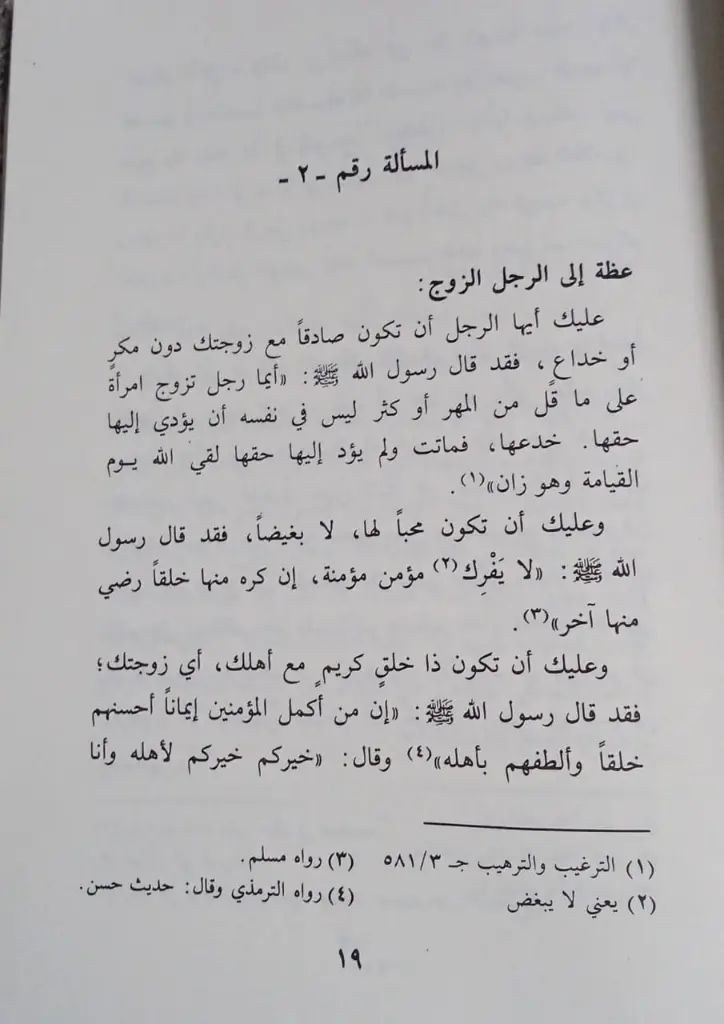 المسألة رقم - ٢ -
عظة إلى الرجل الزوج :
عليك أيها الرجل أن تكون صادقاً مع زوجتك دون مكرٍ
أو خداع، فقد قال رسول الله ﷺ: «أيما رجل تزوج امرأة
على ما قَل من المهر أو كثر ليس في نفسه أن يؤدي إليها
حقها. خدعها، فماتت ولم يؤد إليها حقها لقي الله يوم
القيامة وهو زان»(١).
وعليك أن تكون محباً لها، لا بغيضاً، فقد قال رسول
الله ﷺ: «لا يَفْرِك(٢) مؤمن مؤمنة، إن كره منها خلقاً رضي
منها آخر»(٣).
وعليك أن تكون ذا خلقٍ كريمٍ مع أهلك، أي زوجتك؛
فقد قال رسول الله ﷺ: «إن من أكمل المؤمنين إيماناً أحسنهم
خلقاً وألطفهم بأهله»(٤) وقال: «خيركم خيركم لأهله وأنا
(١) الترغيب والترهيب جـ ٥٨١/٣ (٣) رواه مسلم.
(٢) يعني لا يبغض (٤) رواه الترمذي وقال: حديث حسن.
١٩